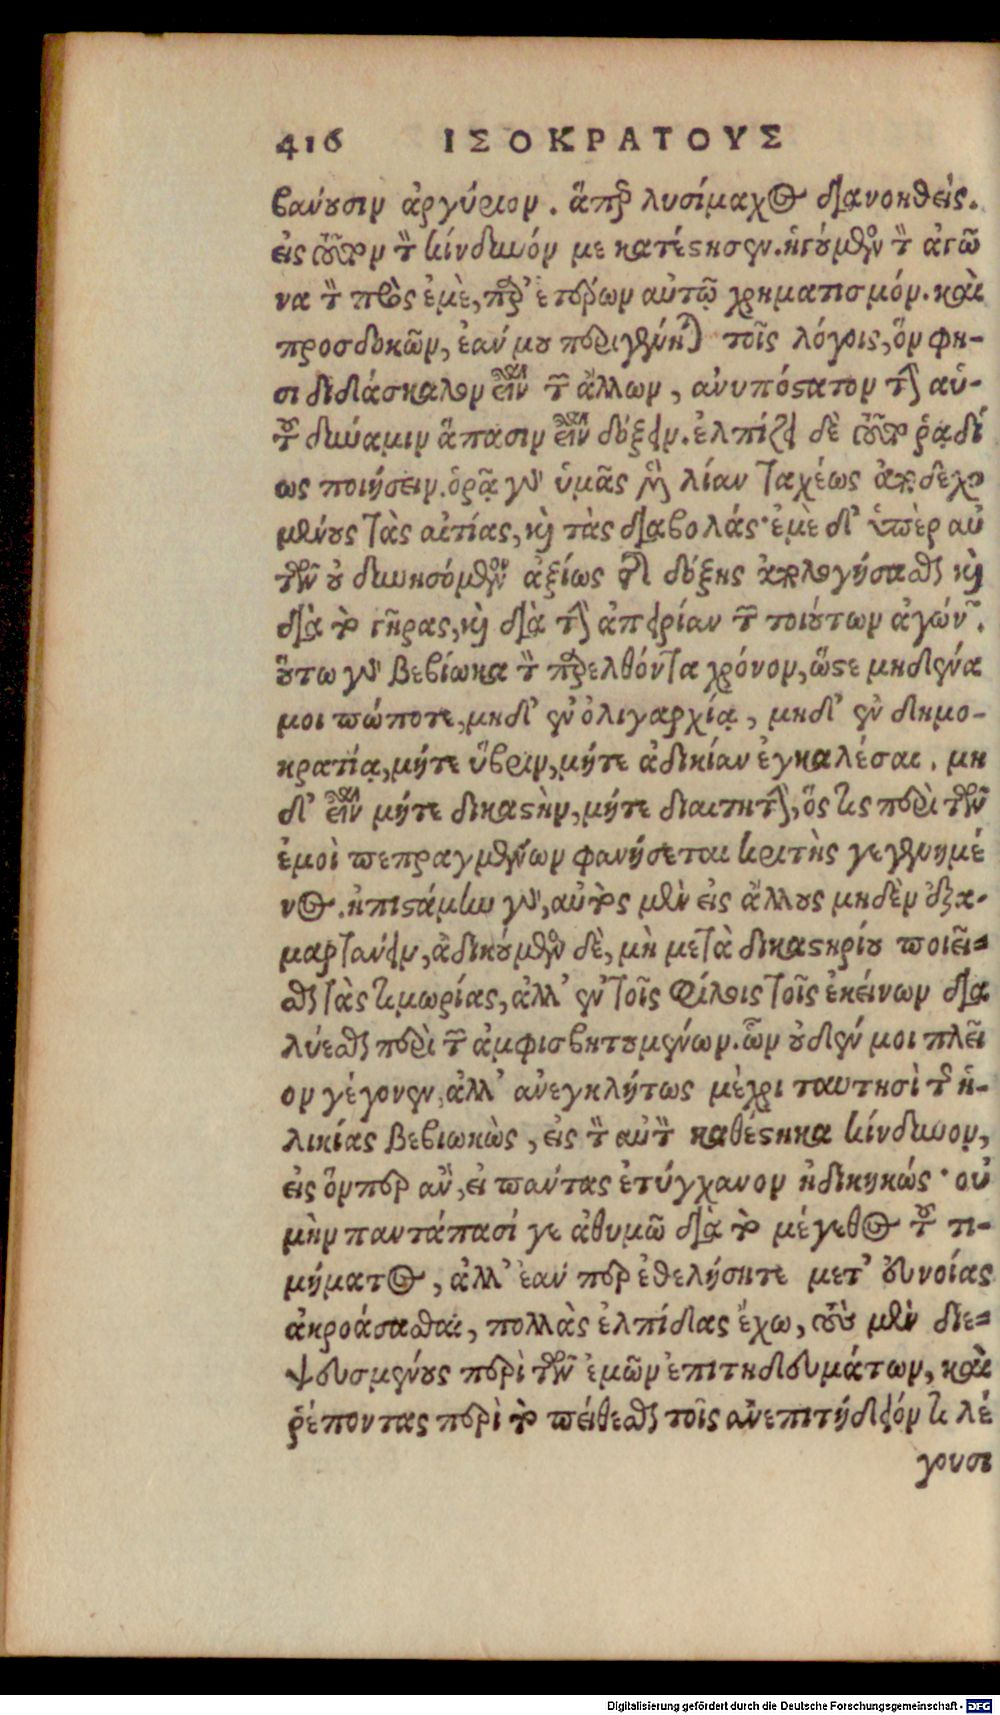 416 ΙΣΟΚΡΑΤΟΥΣ
βανουσιν ἀργύριον. ἅπερ λυσίμαχος διανοηθεὶς.
εἰς τοῦτον τὸν κίνδυνόν με κατέστησεν. ἡγούμενος τὸν ἀγῶ
να τὸν πρὸς ἐμὲ, παρ' ἑτέρων αὐτῷ χρηματισμόν. καὶ
προσδοκῶν, ἐάν μου περιγένηται τοῖς λόγοις, ὅν φη-
σι διδάσκαλον εἶναι τῶν ἄλλων, ἀνυπόστατον τὴν αὑ-
τοῦ δύναμιν ἅπασιν εἶναι δόξειν. ἐλπίζει δὲ τοῦτο ῥᾳδί
ως ποιήσειν. ὁρᾷ γὰρ ὑμᾶς μὲν λίαν ταχέως ἀποδεχο
μένους τὰς αἰτίας, καὶ τὰς διαβολάς· ἐμὲ δ' ὑπὲρ αὐ
τῶν οὐ δυνησόμενον ἀξίως τῆς δόξης ἀπολογήσασθαι καὶ
διὰ τὸ γῆρας, καὶ διὰ τὴν ἀπειρίαν τῶν τοιούτων ἀγώνων.
οὕτω γὰρ βεβίωκα τὸν παρελθόντα χρόνον, ὥστε μηδένα
μοι πώποτε, μηδ' ἐν ὀλιγαρχίᾳ, μηδ' ἐν δημο-
κρατίᾳ, μήτε ὕβριν, μήτε ἀδικίαν ἐγκαλέσαι. μη
δ' εἶναι μήτε δικαστὴν, μήτε διαιτητὴν, ὅς τις περὶ τῶν
ἐμοὶ πεπραγμένων φανήσεται κριτὴς γεγενημέ
νος. ἠπιστάμην γὰρ, αὐτὸς μὲν εἰς ἄλλους μηδὲν ἐξα-
μαρτάνειν, ἀδικούμενος δὲ, μὴ μετὰ δικαστηρίου ποιεῖ-
σθαι τὰς τιμωρίας, ἀλλ' ἐν τοῖς φίλοις τοῖς ἐκείνων δια
λύεσθαι περὶ τῶν ἀμφισβητουμένων. ὧν οὐδέν μοι πλεῖ
ον γέγονεν, ἀλλ' ἀνεγκλήτως μὲχρι ταυτησὶ τῆς ἡ-
λικίας βεβιωκὼς, εἰς τὸν αὐτὸν καθέστηκα κίνδυνον,
εἰς ὅνπερ ἂν, εἰ πάντας ἐτύγχανον ἠδικηκώς· οὐ
μὴν παντάπασί γε ἀθυμῶ διὰ τὸ μέγεθος τοῦ τι-
μήματος, ἀλλ' ἐάν περ ἐθελήσητε μετ' εὐνοίας
ἀκροάσασθαι, πολλὰς ἐλπίδας ἔχω, τοὺς μὲν διε-
ψευσμένους περὶ τῶν ἐμῶν ἐπιτηδευμάτων, καὶ
ῥέποντας περὶ τὸ πείθεσθαι τοῖς ἀνεπιτήδειόν τι λέ
γουσι
Digitalisierung gefördert durch die Deutsche Forschungsgemeinschaft - DFG